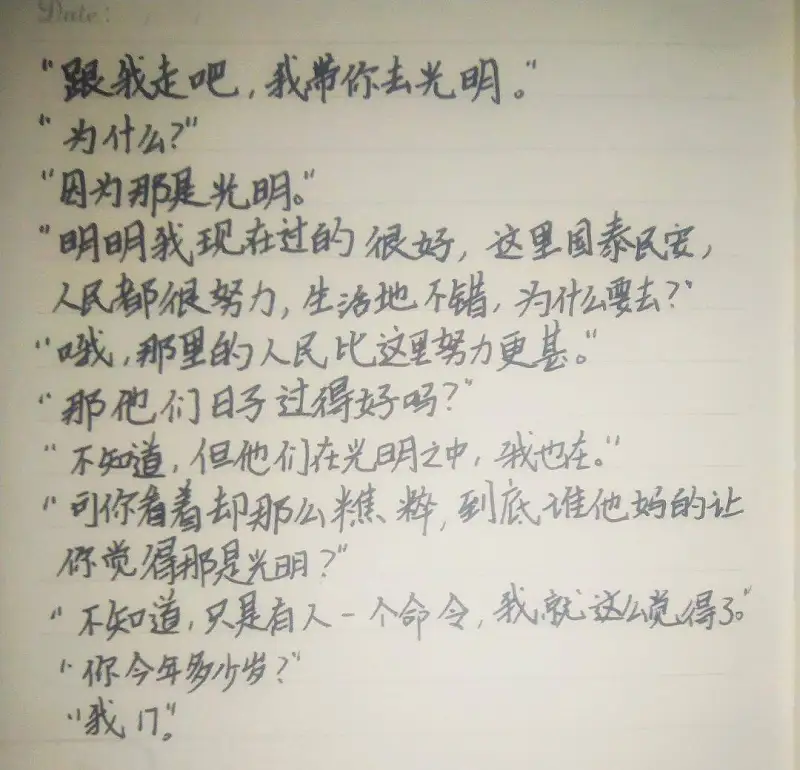 Date:
"跟我走吧，我带你去光明。"
"为什么？"
"因为那是光明。"
"明明我现在过的很好，这里国泰民安，
人民都很努力，生活地不错，为什么要去？"
"哦，那里的人民比这里努力更甚。"
"那他们日子过得好吗？"
"不知道，但他们在光明之中，我也在。"
"可你看着却那么憔悴，到底谁他妈的让
你觉得那是光明？"
"不知道，只是有人一个命令，我就这么觉得了。"
"你今年多少岁？"
"我17。"